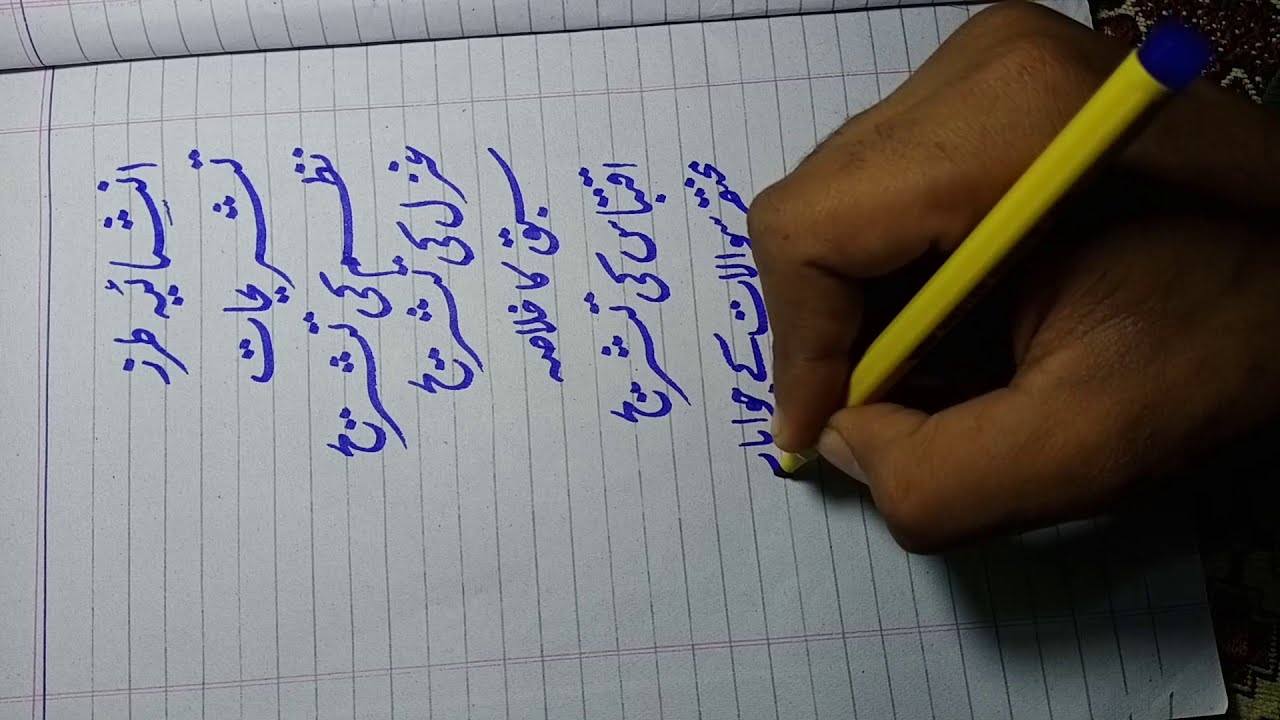 انشائیہ طرز
تشریحات
نظم کی تشریح
غزل کی تشریح
سبق کا خلاصہ
اقتباس کی تشریح
مختصر سوالات کے جوابا